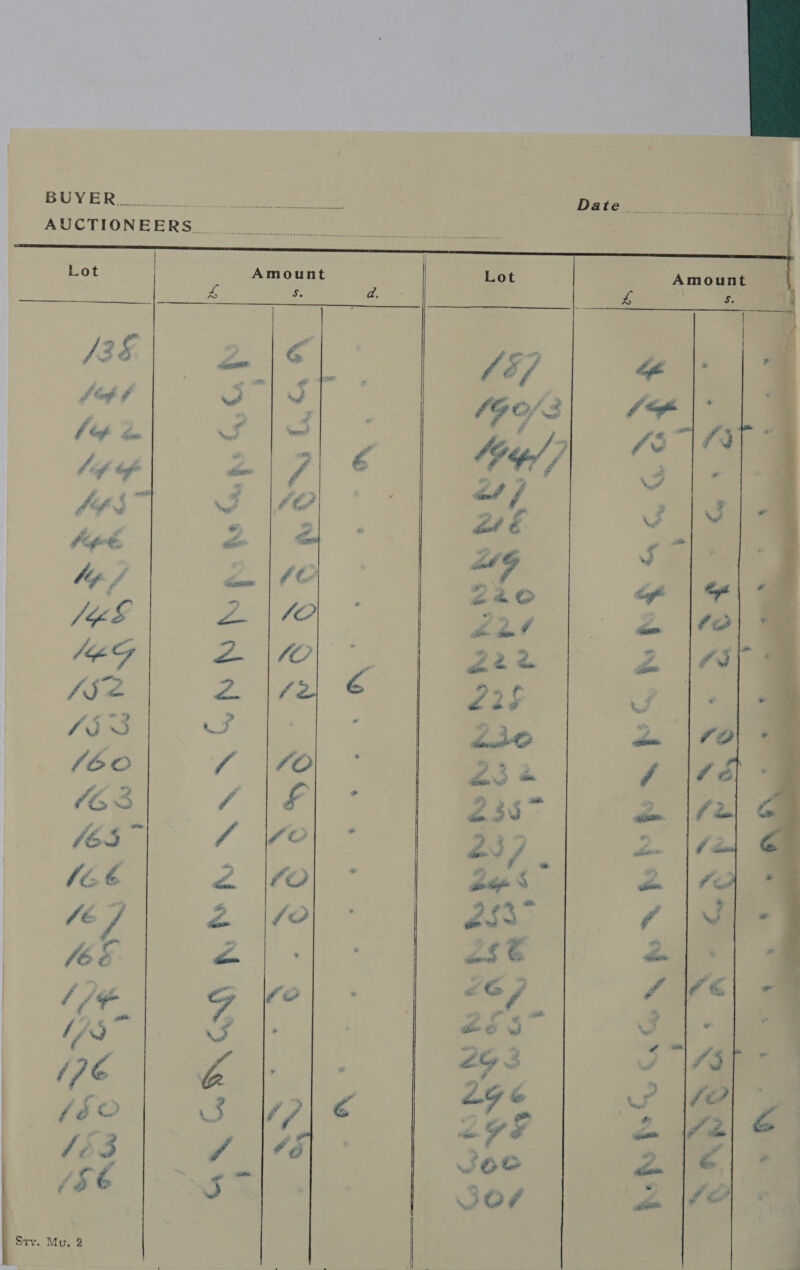 BUYER
Date
AUCTIONEERS
Lot Amount Lot Amount
£ s. d. £ s.
138 2 6 -
141 5 5 -
142 3 3 -
144 2 7 6
145 3 10 -
146 2 2 -
147 2 10
148 2 10 -
149 2 10 -
152 2 12 6
153 3 - -
160 1 10 -
163 1 8 -
165 1 10 -
166 2 10 -
167 2 10 -
168 2 - -
174 9 10 -
175 3 -
176 6 - -
180 3 17 6
183 1 18 -
186 5
187 4 - -
190/3 14 -
194/7 15 15 -
217 3 -
218 3 3 -
219 5
220 4 4 -
221 2 10 -
222 2 15 -
228 3 - -
230 2 10 -
232 1 18 -
235 2 12 6
237 2 12 6
245 2 10 -
253 1 3 -
258 2 - -
267 1 16 -
285 3 - -
293 5 15 -
296 3 10
298 2 12 6
300 2 6 -
301 2 10 -
Sty. Mu. 2